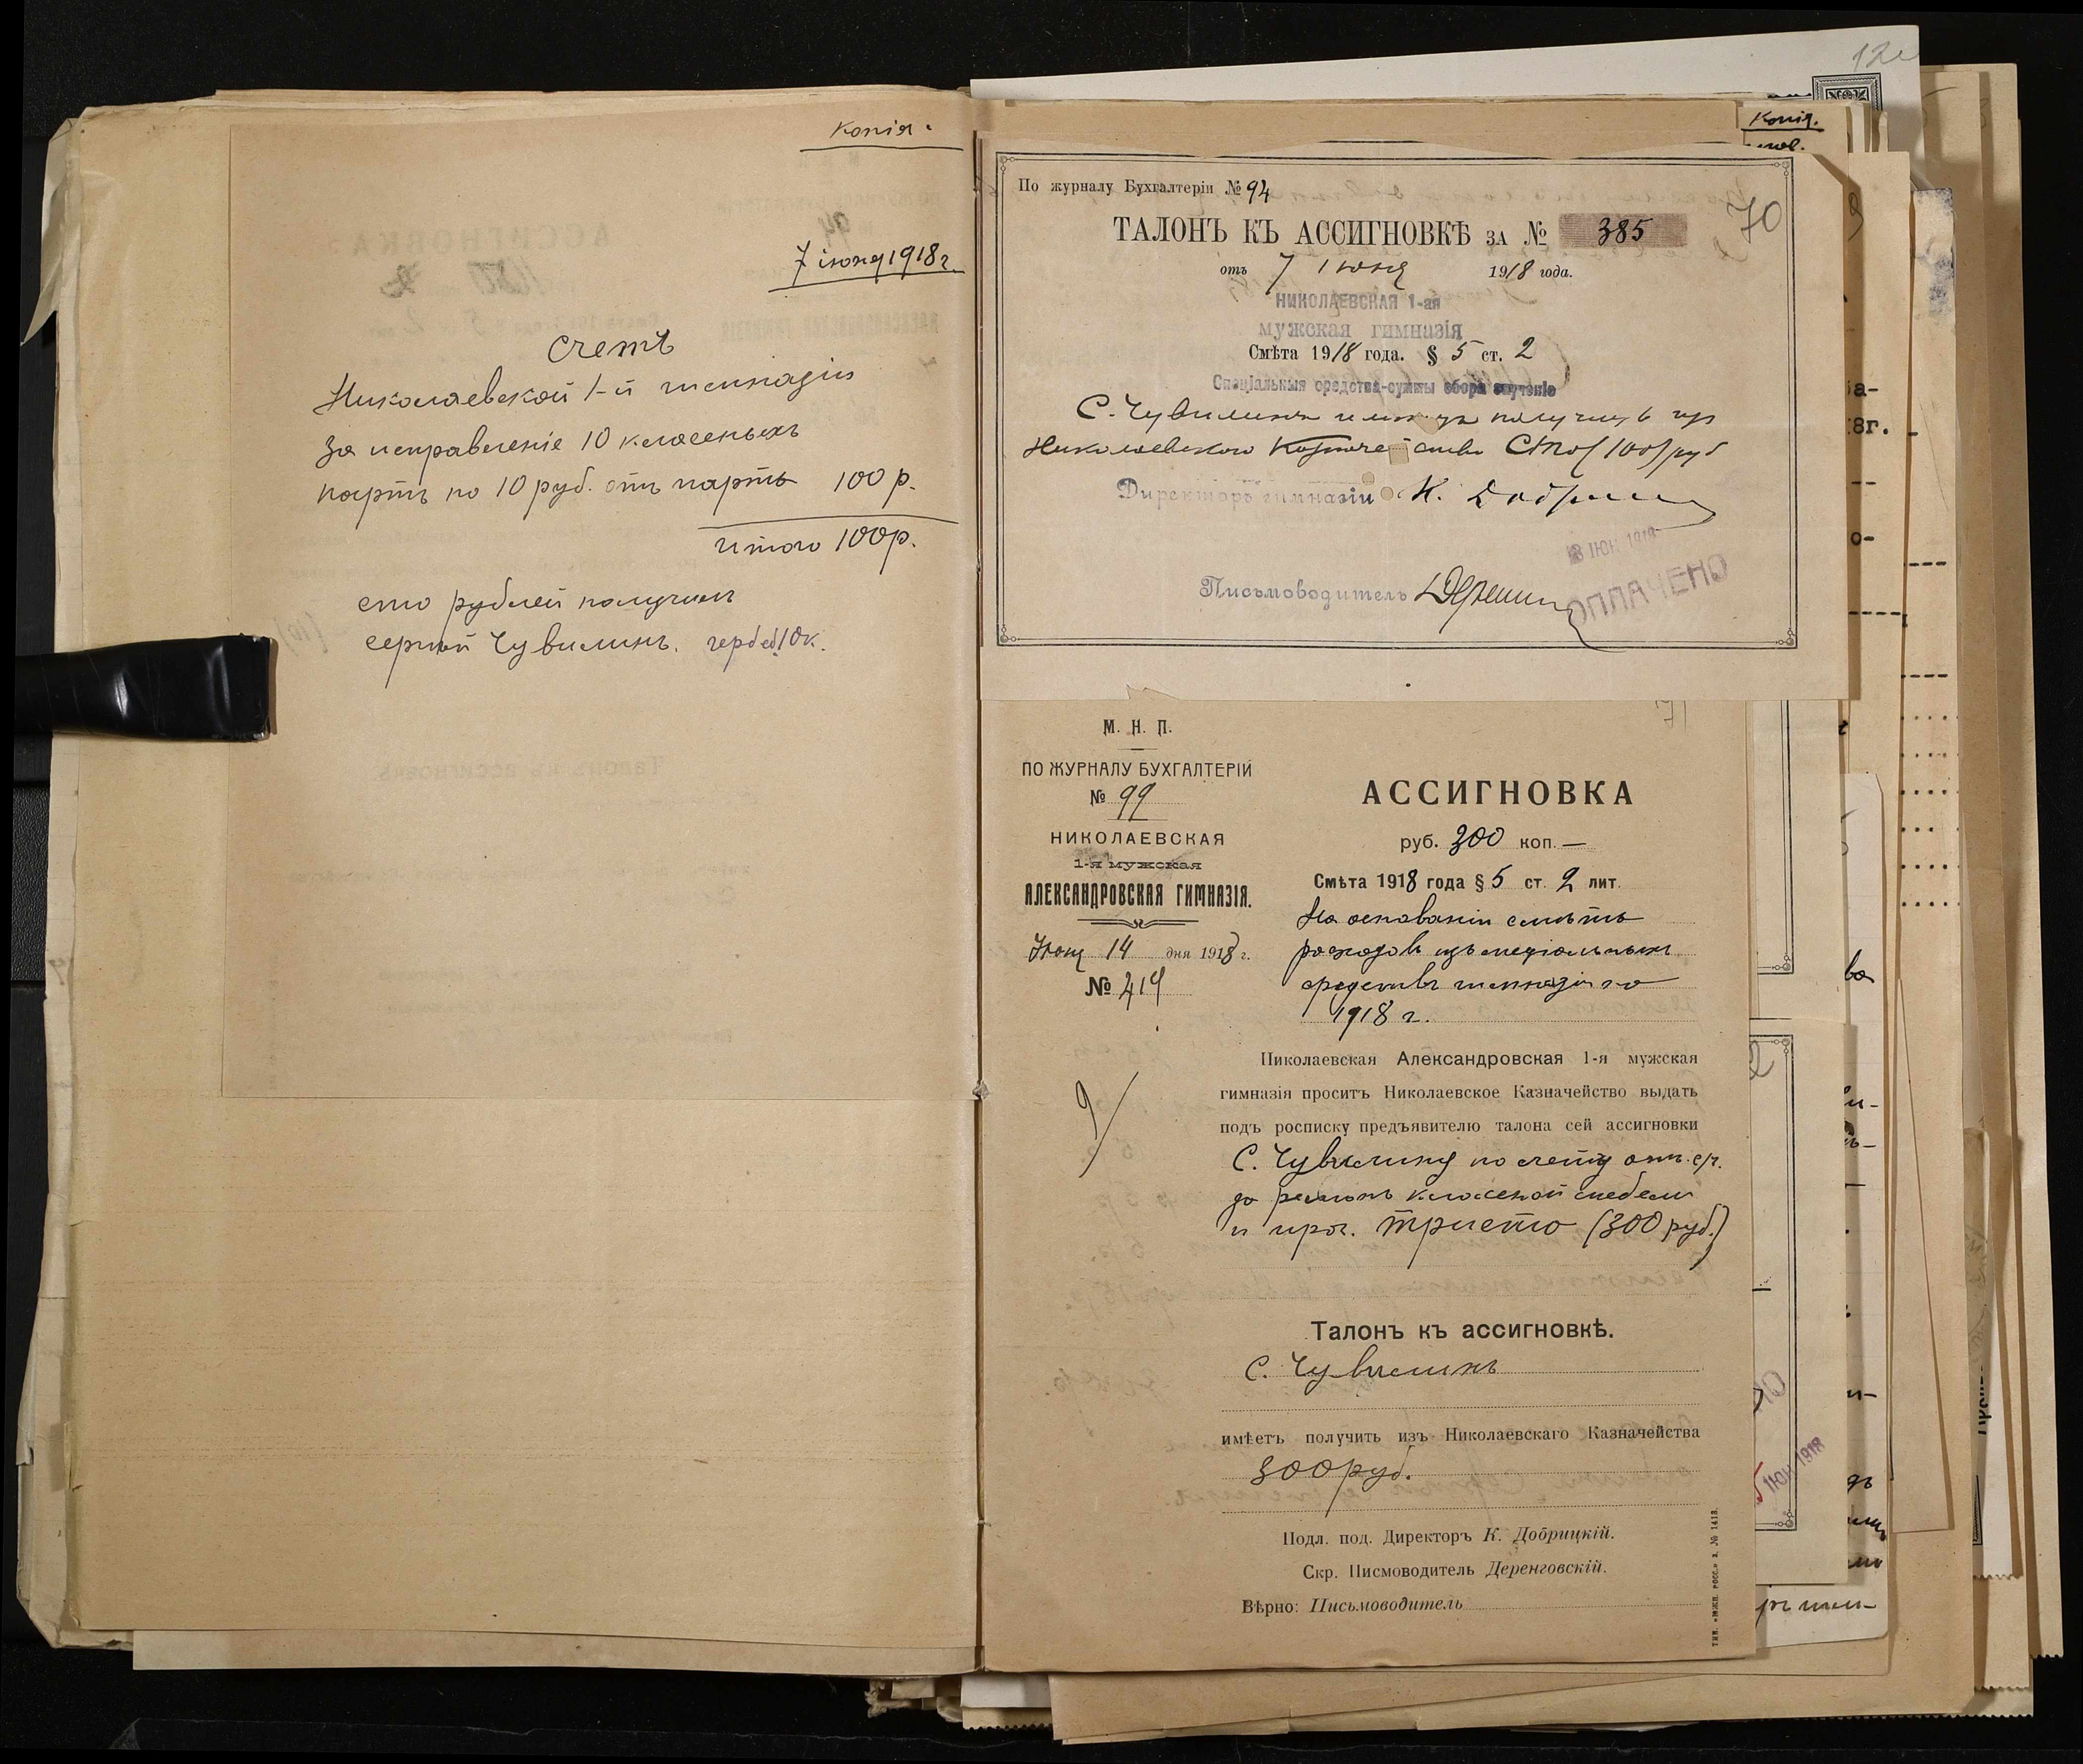 Копія.
7 іюня 1918 г.
Счетъ
Николаевской 1-й гимназіи
За исправленіе 10 классныхъ
партъ по 10 руб. отъ парты 100 р.
Итого 100 р.
сто рублей получилъ
Сергей Чувилинъ. герб сб. 10 к.
120
Копія.
По журналу Бухгалтеріи № 94
70
ТАЛОНЪ КЪ АССИГНОВКѢ ЗА № 385
отъ 7 Іюня 1918 года.
НИКОЛАЕВСКАЯ 1-ая
мужская гимназія
Смѣта 1918 года. § 5 ст. 2
Спеціальныя средства-суммы сбора за ученіе
С. Чувилинъ имѣетъ получить изъ
Николаевского Казначейства Сто (100) руб
Директоръ гимназіи К. Добрицкій
13 ІЮН 1918
ОПЛАЧЕНО
Письмоводитель
М. Н. П.
ПО ЖУРНАЛУ БУХГАЛТЕРІИ
№ 99
НИКОЛАЕВСКАЯ
1-я мужская
АЛЕКСАНДРОВСКАЯ ГИМНАЗІЯ.
Іюня 14 дня 1918 г.
№ 419
71
АССИГНОВКА
руб. 300 коп. —
Смѣта 1918 года § 5 ст. 2 лит.
На основаніи смѣты
расходовъ изъ спеціальныхъ
средствъ гимназіи на
1918 г.
Николаевская Александровская 1-я мужская
гимназія проситъ Николаевское Казначейство выдать
подъ росписку предъявителю талона сей ассигновки
С. Чувилину по счету отъ с/ч.
за ремонтъ классной мебели
и проч. триста (300 руб.)
Талонъ къ ассигновкѣ.
С. Чувилинъ
имѣетъ получить изъ Николаевскаго Казначейства
300 руб.
Подл. под. Директоръ К. Добрицкій.
Скр. Письмоводитель Деренговскій.
Вѣрно: Письмоводитель
15 ІЮН 1918